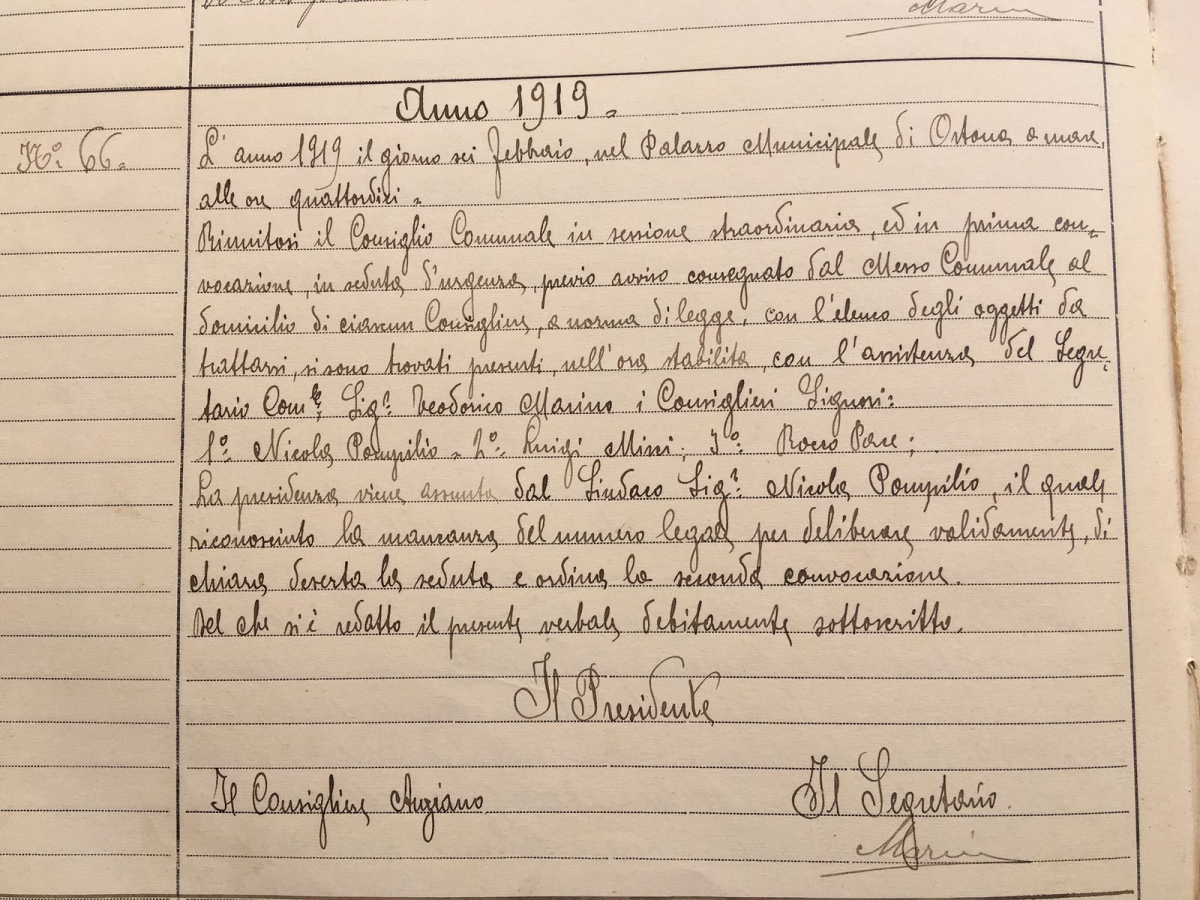 Marin
Anno 1919 =
N.º 66 =
L'anno 1919 il giorno sei Febbraio, nel Palazzo Municipale di Ortona a mare,
alle ore quattordici =
Riunitosi il Consiglio Comunale in sessione straordinaria, ed in prima con=
vocazione, in seduta d'urgenza, previo avviso consegnato dal Messo Comunale al
domicilio di ciascun Consigliere, a norma di legge, con l'elenco degli oggetti da
trattarsi, si sono trovati presenti, nell'ora stabilita, con l'assistenza del Segre=
tario Com.le Sig.r Teodorico Marino i Consiglieri Signori:
1.º Nicola Pompilio = 2.º Luigi Misci; 3.º Rocco Pace;
La presidenza viene assunta dal Sindaco Sig.r Nicola Pompilio, il quale
riconosciuto la mancanza del numero legale per deliberare validamente, di
chiara deserta la seduta e ordina la seconda convocazione.
Del che si è redatto il presente verbale debitamente sottoscritto.
Il Presidente
Il Consigliere Anziano
Il Segretario
Marin